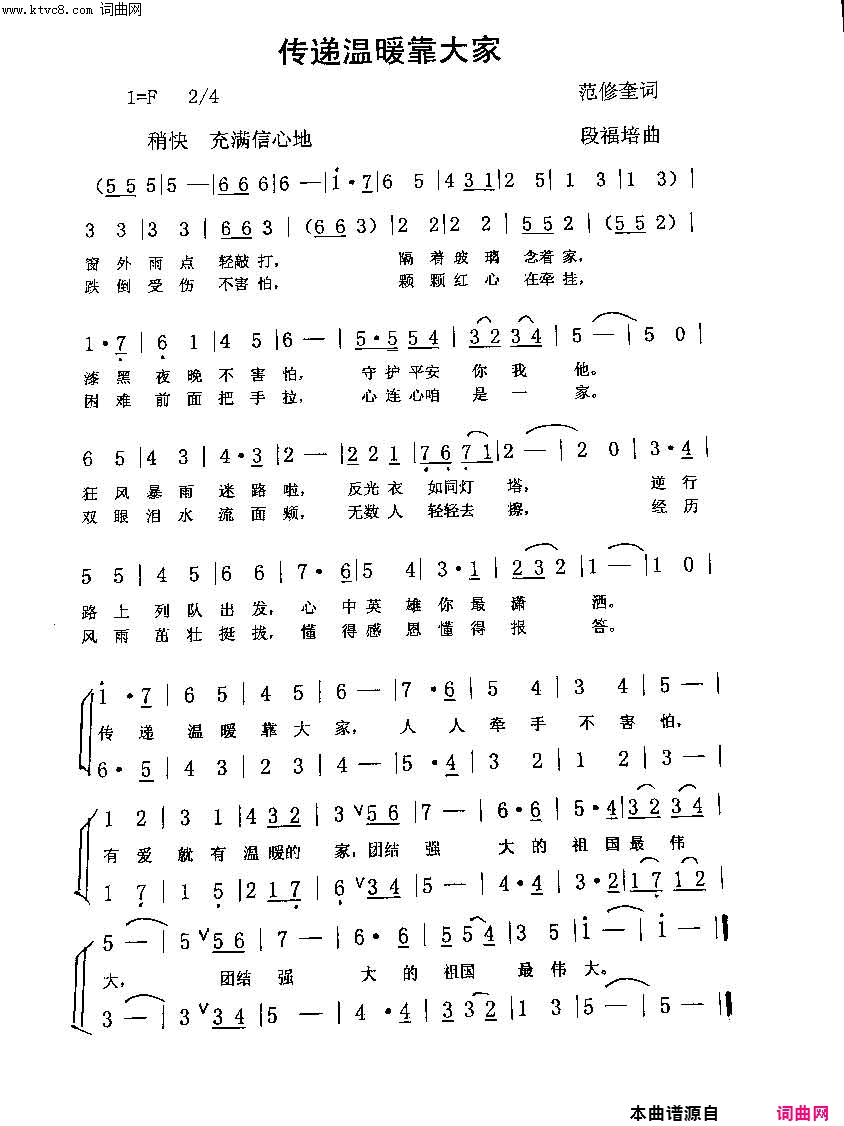 www.ktvc8.com 词曲网
传递温暖靠大家
1=F 2/4 范修奎词
稍快 充满信心地 段福培曲
(5 5 5|5 —|6 6 6|6 —|1·7|6 5|4 3 1|2 5|1 3|1 3)|
3 3|3 3|6 6 3|(6 6 3)|2 2|2 2|5 5 2|(5 5 2)|
窗外雨点 轻敲打, 隔着玻璃 念着家,
跌倒受伤 不害怕, 颗颗红心 在牵挂,
1·7|6 1|4 5|6 —|5·5 5 4|3 2 3 4|5 —|5 0|
漆黑夜晚不害怕, 守护平安 你我他。
困难前面把手拉, 心连心咱 是一家。
6 5|4 3|4·3|2 —|2 2 1|7 6 7 1|2 —|2 0|3·4|
狂风暴雨迷路啦, 反光衣 如同灯塔, 逆行
双眼泪水流面颊, 无数人 轻轻去擦, 经历
5 5|4 5|6 6|7·6|5 4|3·1|2 3 2|1 —|1 0|
路上列队出发, 心中英雄你最潇洒。
风雨茁壮挺拔, 懂得感恩懂得报答。
1·7|6 5|4 5|6 —|7·6|5 4|3 4|5 —|
传递温暖靠大家, 人人牵手不害怕,
6·5|4 3|2 3|4 —|5·4|3 2|1 2|3 —|
1 2|3 1|4 3 2|3 V 5 6|7 —|6·6|5·4|3 2 3 4|
有爱就有温暖的 家,团结强 大的祖国最伟
1 7|1 5|2 1 7|6 V 3 4|5 —|4·4|3·2|1 7 1 2|
5 —|5 V 5 6|7 —|6·6|5 5 4|3 5|1 —|1 —‖
大, 团结强 大的祖国 最伟大。
3 —|3 V 3 4|5 —|4·4|3 3 2|1 3|5 —|5 —‖
本曲谱源自 词曲网